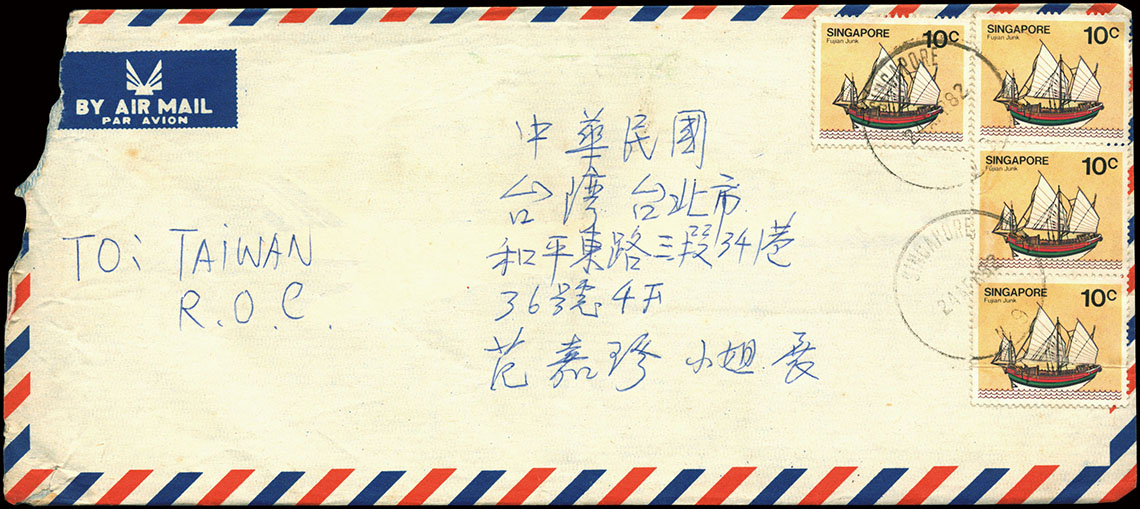 BY AIR MAIL
PAR AVION
SINGAPORE 10C
Fujian Junk
SINGAPORE 10C
Fujian Junk
SINGAPORE 10C
Fujian Junk
SINGAPORE 10C
Fujian Junk
SINGAPORE
82
SINGAPORE
中華民國
台灣 台北市
和平東路三段341巷
36號4F
范嘉珍 小姐 展
TO: TAIWAN
R.O.C.